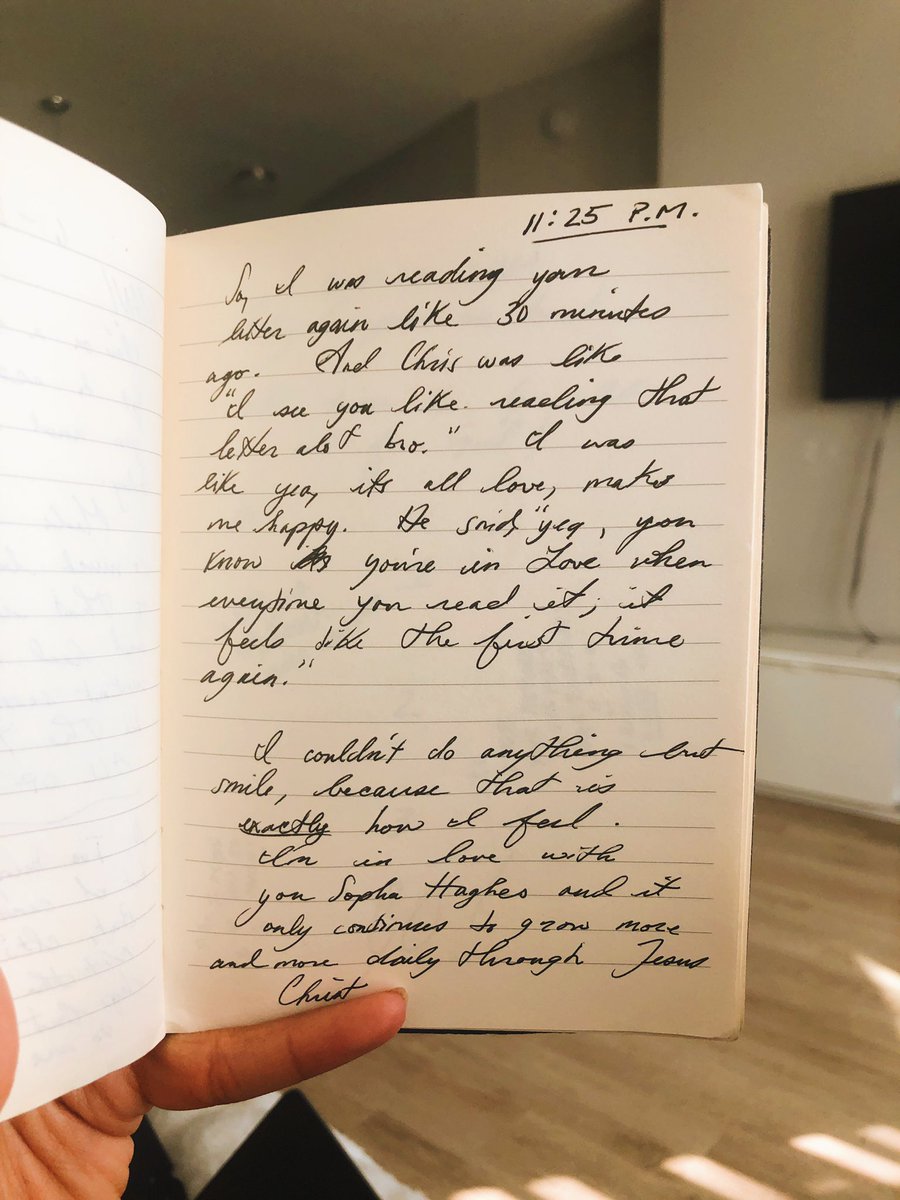 11:25 P.M.
So, I was reading your
letter again like 30 minutes
ago. And Chris was like
"I see you like reading that
letter alot bro." I was
like yea, its all love, makes
me happy. He said, "yea, you
know you're in Love when
everytime you read it; it
feels like the first time
again."
I couldn't do anything but
smile, because that is
exactly how I feel.
I'm in love with
you Sopha Hughes and it
only continues to grow more
and more daily through Jesus
Christ